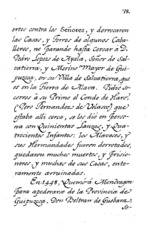 78.
ertes contra los Señores, y derrocaron
las Casas, y Torres de algunos Caba-
lleros, no parando hasta cercar a D.
Pedro Lopez de Ayala, Señor de Sal-
vatierra, y Merino Mayor de Gui-
puzcoa, en su Villa de Salvatierra, que
es en la tierra de Alava. Pidio so-
corro a su Primo el Conde de Haro,
(Don Fernandez de Velasco) que
estaba alli cerca, o se dio en perso-
na con Quinientas Lanzas, y Qua-
trocientos Infantes; los Alaveses, y
sus Hermandades fueron derrotados,
quedaron muchos muertos, y prisio-
neros, y muchas de sus Casas, ente-
ramente arruinadas.
En 1448, Quemó á Mondragon
Gente apoderano de la Provincia de
Guipuzcoa, Don Beltran de Guebara,
Se-